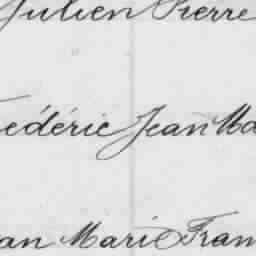 Julien Pierre
edéric Jean Ma
an Marie Fran